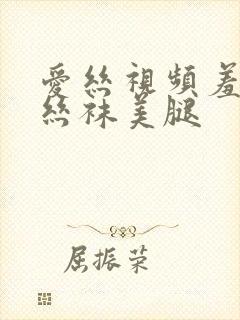 愛絲視頻羞
絲袜美腿
屈振荣